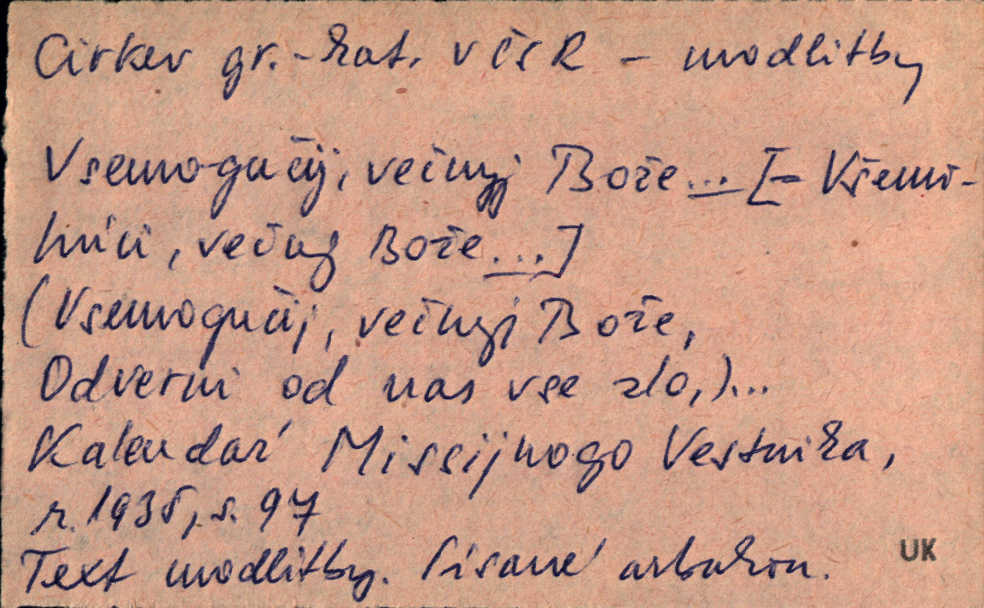 Cirkev gr.-kat. v ČSR – modlitby
Vsemogučij, večnyj Bože... [= Všemo-
húci, večný Bože...]
(Vsemogučij, večnyj Bože,
Odverni od nas vse zlo,)...
Kalendar Missijnogo Vestnika,
r. 1935, s. 97
Text modlitby. Písané azbukou.
UK